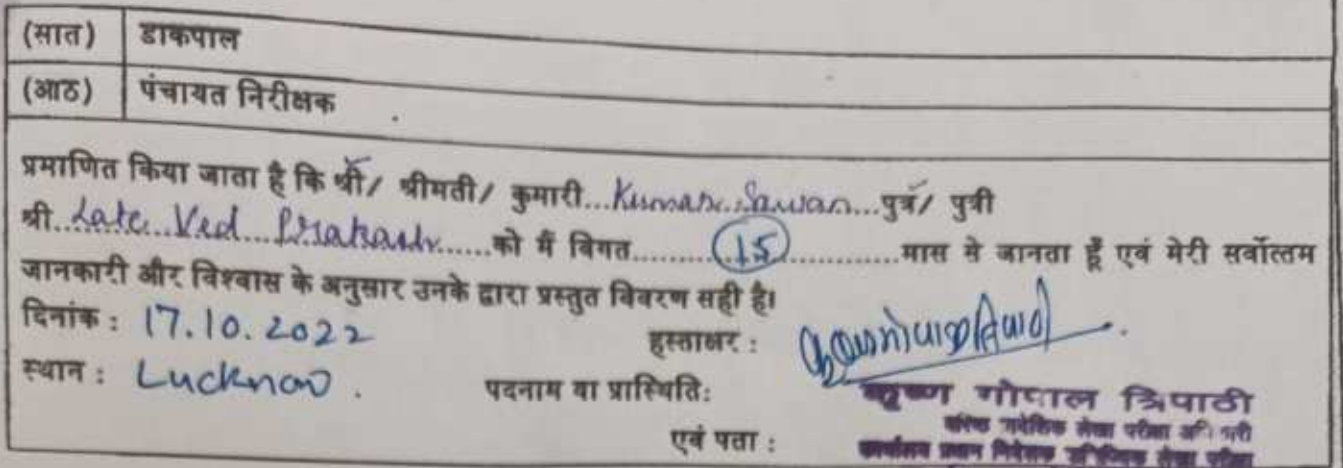 (सात) डाकपाल
(आठ) पंचायत निरीक्षक
प्रमाणित किया जाता है कि श्री/ श्रीमती/ कुमारी...Kumar Sawan...पुत्र/ पुत्री
श्री..Late Ved Prakash......को मैं विगत.........(15).............मास से जानता हूँ एवं मेरी सर्वोत्तम
जानकारी और विश्वास के अनुसार उनके द्वारा प्रस्तुत विवरण सही है।
दिनांक : 17.10.2022 हस्ताक्षर :
स्थान : Lucknow . पदनाम वा प्रास्थिति:
कृष्ण गोपाल त्रिपाठी
लेखा परीक्षा
एवं पता :
कार्यालय प्रधान निदेशक लेखा परीक्षा